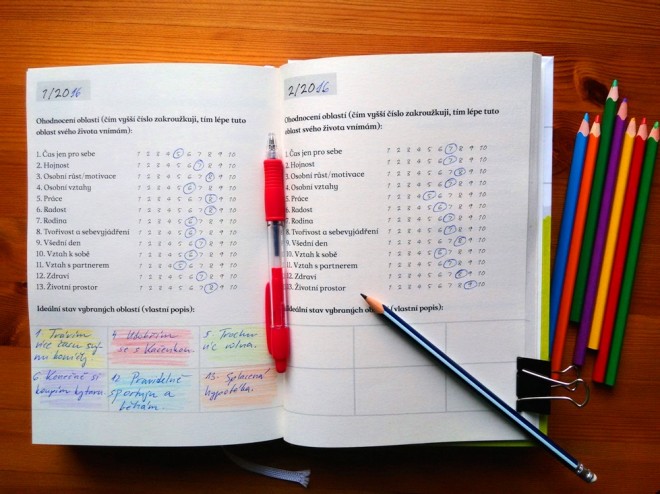 1/2016
Ohodnocení oblastí (čím vyšší číslo zakroužkuji, tím lépe tuto
oblast svého života vnímám):
1. Čas jen pro sebe 1 2 3 4 5 6 7 8 9 10
2. Hojnost 1 2 3 4 5 6 7 8 9 10
3. Osobní růst/motivace 1 2 3 4 5 6 7 8 9 10
4. Osobní vztahy 1 2 3 4 5 6 7 8 9 10
5. Práce 1 2 3 4 5 6 7 8 9 10
6. Radost 1 2 3 4 5 6 7 8 9 10
7. Rodina 1 2 3 4 5 6 7 8 9 10
8. Tvořivost a sebevyjádření 1 2 3 4 5 6 7 8 9 10
9. Všední den 1 2 3 4 5 6 7 8 9 10
10. Vztah k sobě 1 2 3 4 5 6 7 8 9 10
11. Vztah s partnerem 1 2 3 4 5 6 7 8 9 10
12. Zdraví 1 2 3 4 5 6 7 8 9 10
13. Životní prostor 1 2 3 4 5 6 7 8 9 10
Ideální stav vybraných oblastí (vlastní popis):
1. Trávím
více času svý-
mi koníčky
4.
se s
5. Trochu
víc volna.
6. Konečně si
koupím kytaru.
12. Pravidelně
sportuji a
běhám.
13. Splacená
hypotéka.
2/2016
Ohodnocení oblastí (čím vyšší číslo zakroužkuji, tím lépe tuto
oblast svého života vnímám):
1. Čas jen pro sebe 1 2 3 4 5 6 7 8 9 10
2. Hojnost 1 2 3 4 5 6 7 8 9 10
3. Osobní růst/motivace 1 2 3 4 5 6 7 8 9 10
4. Osobní vztahy 1 2 3 4 5 6 7 8 9 10
5. Práce 1 2 3 4 5 6 7 8 9 10
6. Radost 1 2 3 4 5 6 7 8 9 10
7. Rodina 1 2 3 4 5 6 7 8 9 10
8. Tvořivost a sebevyjádření 1 2 3 4 5 6 7 8 9 10
9. Všední den 1 2 3 4 5 6 7 8 9 10
10. Vztah k sobě 1 2 3 4 5 6 7 8 9 10
11. Vztah s partnerem 1 2 3 4 5 6 7 8 9 10
12. Zdraví 1 2 3 4 5 6 7 8 9 10
13. Životní prostor 1 2 3 4 5 6 7 8 9 10
Ideální stav vybraných oblastí (vlastní popis):